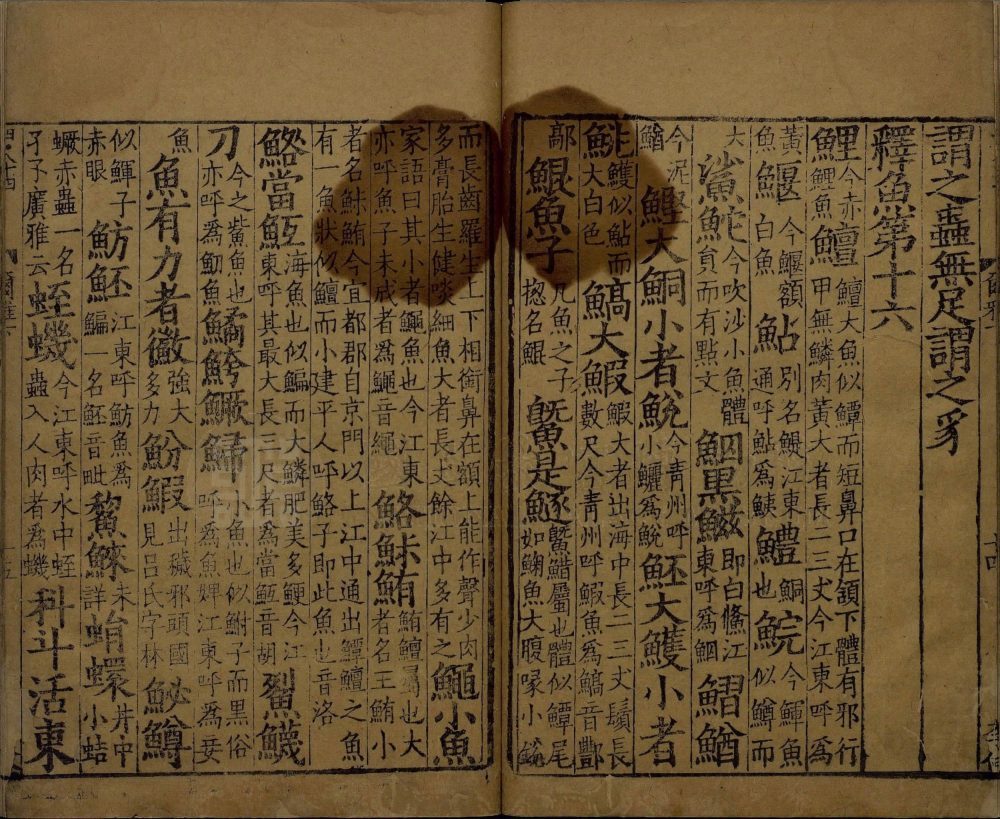 謂之蟲無足謂之豸
釋魚第十六
鯉今赤鯉魚鱣鱣大魚似鱏而短鼻口在頷下體有邪行甲無鱗肉黃大者長二三丈今江東呼爲
黃魚鰋今鰋額白魚鮎別名鯷江東通呼鮎爲鮧鱧鮦也鯇今鯶魚似鱒而
大鯊鮀今吹沙小魚體貟而有點文鮂黑鰦即白鯈江東呼爲鮂鰼鰌
今泥鰌鰹大鮦小者鮵今青州呼小鱺爲鮵魾大鱯小者
鮡鱯似鮎而大白色鰝大鰕鰕大者出海中長二三丈鬚長數尺今青州呼鰕魚爲鰝音酆
鄗鯤魚子凡魚之子揔名鯤鱀是鱁鱀䱜屬也體似鱏尾如䱡魚大腹喙小銳
而長齒羅生上下相銜鼻在額上能作聲少肉多膏胎生健啖細魚大者長丈餘江中多有之鱦小魚
家語曰其小者鱦魚也今江東亦呼魚子未成者爲鱦音繩鮥鮛鮪鮪鱣屬也大者名王鮪小
者名鮛鮪今宜都郡自京門以上江中通出鱏鱣之魚有一魚狀似鱣而小建平人呼鮥子即此魚也音洛
鯦當魱海魚也似鯿而大鱗肥美多鯁今江東呼其最大長三尺者爲當魱音胡鮤鱴
刀今之鮆魚也亦呼爲魛魚鱊鮬鱖鯞小魚也似鮒子而黑俗呼爲魚婢江東呼爲妾
魚魚有力者鰴強大多力魵鰕出穢邪頭國見呂氏字林鮅鱒
似鯶子赤眼魴魾江東呼魴魚爲鯿一名魾音毗鯬鯠未詳蜎蠉井中小蛣
蟩赤蟲一名孑孓廣雅云蛭蟣今江東呼水中蛭蟲入人肉者爲蟣科斗活東